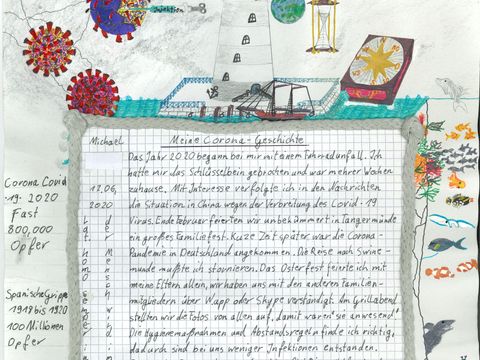 Injektion
Michael
2020
Meine Corona-Geschichte
Das Jahr 2020 begann bei mir mit einem Fahrradunfall. Ich
hatte mir das Schlüsselbein gebrochen und war mehrer Wochen
zuhause. Mit Interesse verfolgte ich in den Nachrichten
die Situation in China wegen der Verbreitung des Covid-19
Virus. Ende Februar feierten wir unbekümmert in Tangermünde
ein großes Familiefest. Kurze Zeit später war die Corona-
Pandemie in Deutschland angekommen. Die Reise nach Swine-
münde mußte ich stornieren. Das Osterfest feierte ich mit
meine Eltern allein, wir haben uns mit den anderen Familien-
mitgliedern über Wapp oder Skype verständigt. Am Grillabend
stellten wir die Fotos von allen auf, damit waren sie anwesend!
Die Hygienemaßnahmen und Abstandsregeln finde ich richtig,
dadurch sind bei uns weniger Infektionen entstanden.
Corona Covid
19. 2020
Fast
800,000
Opfer
Spanische Grippe
1918 bis 1920
100 Millonen
Opfer